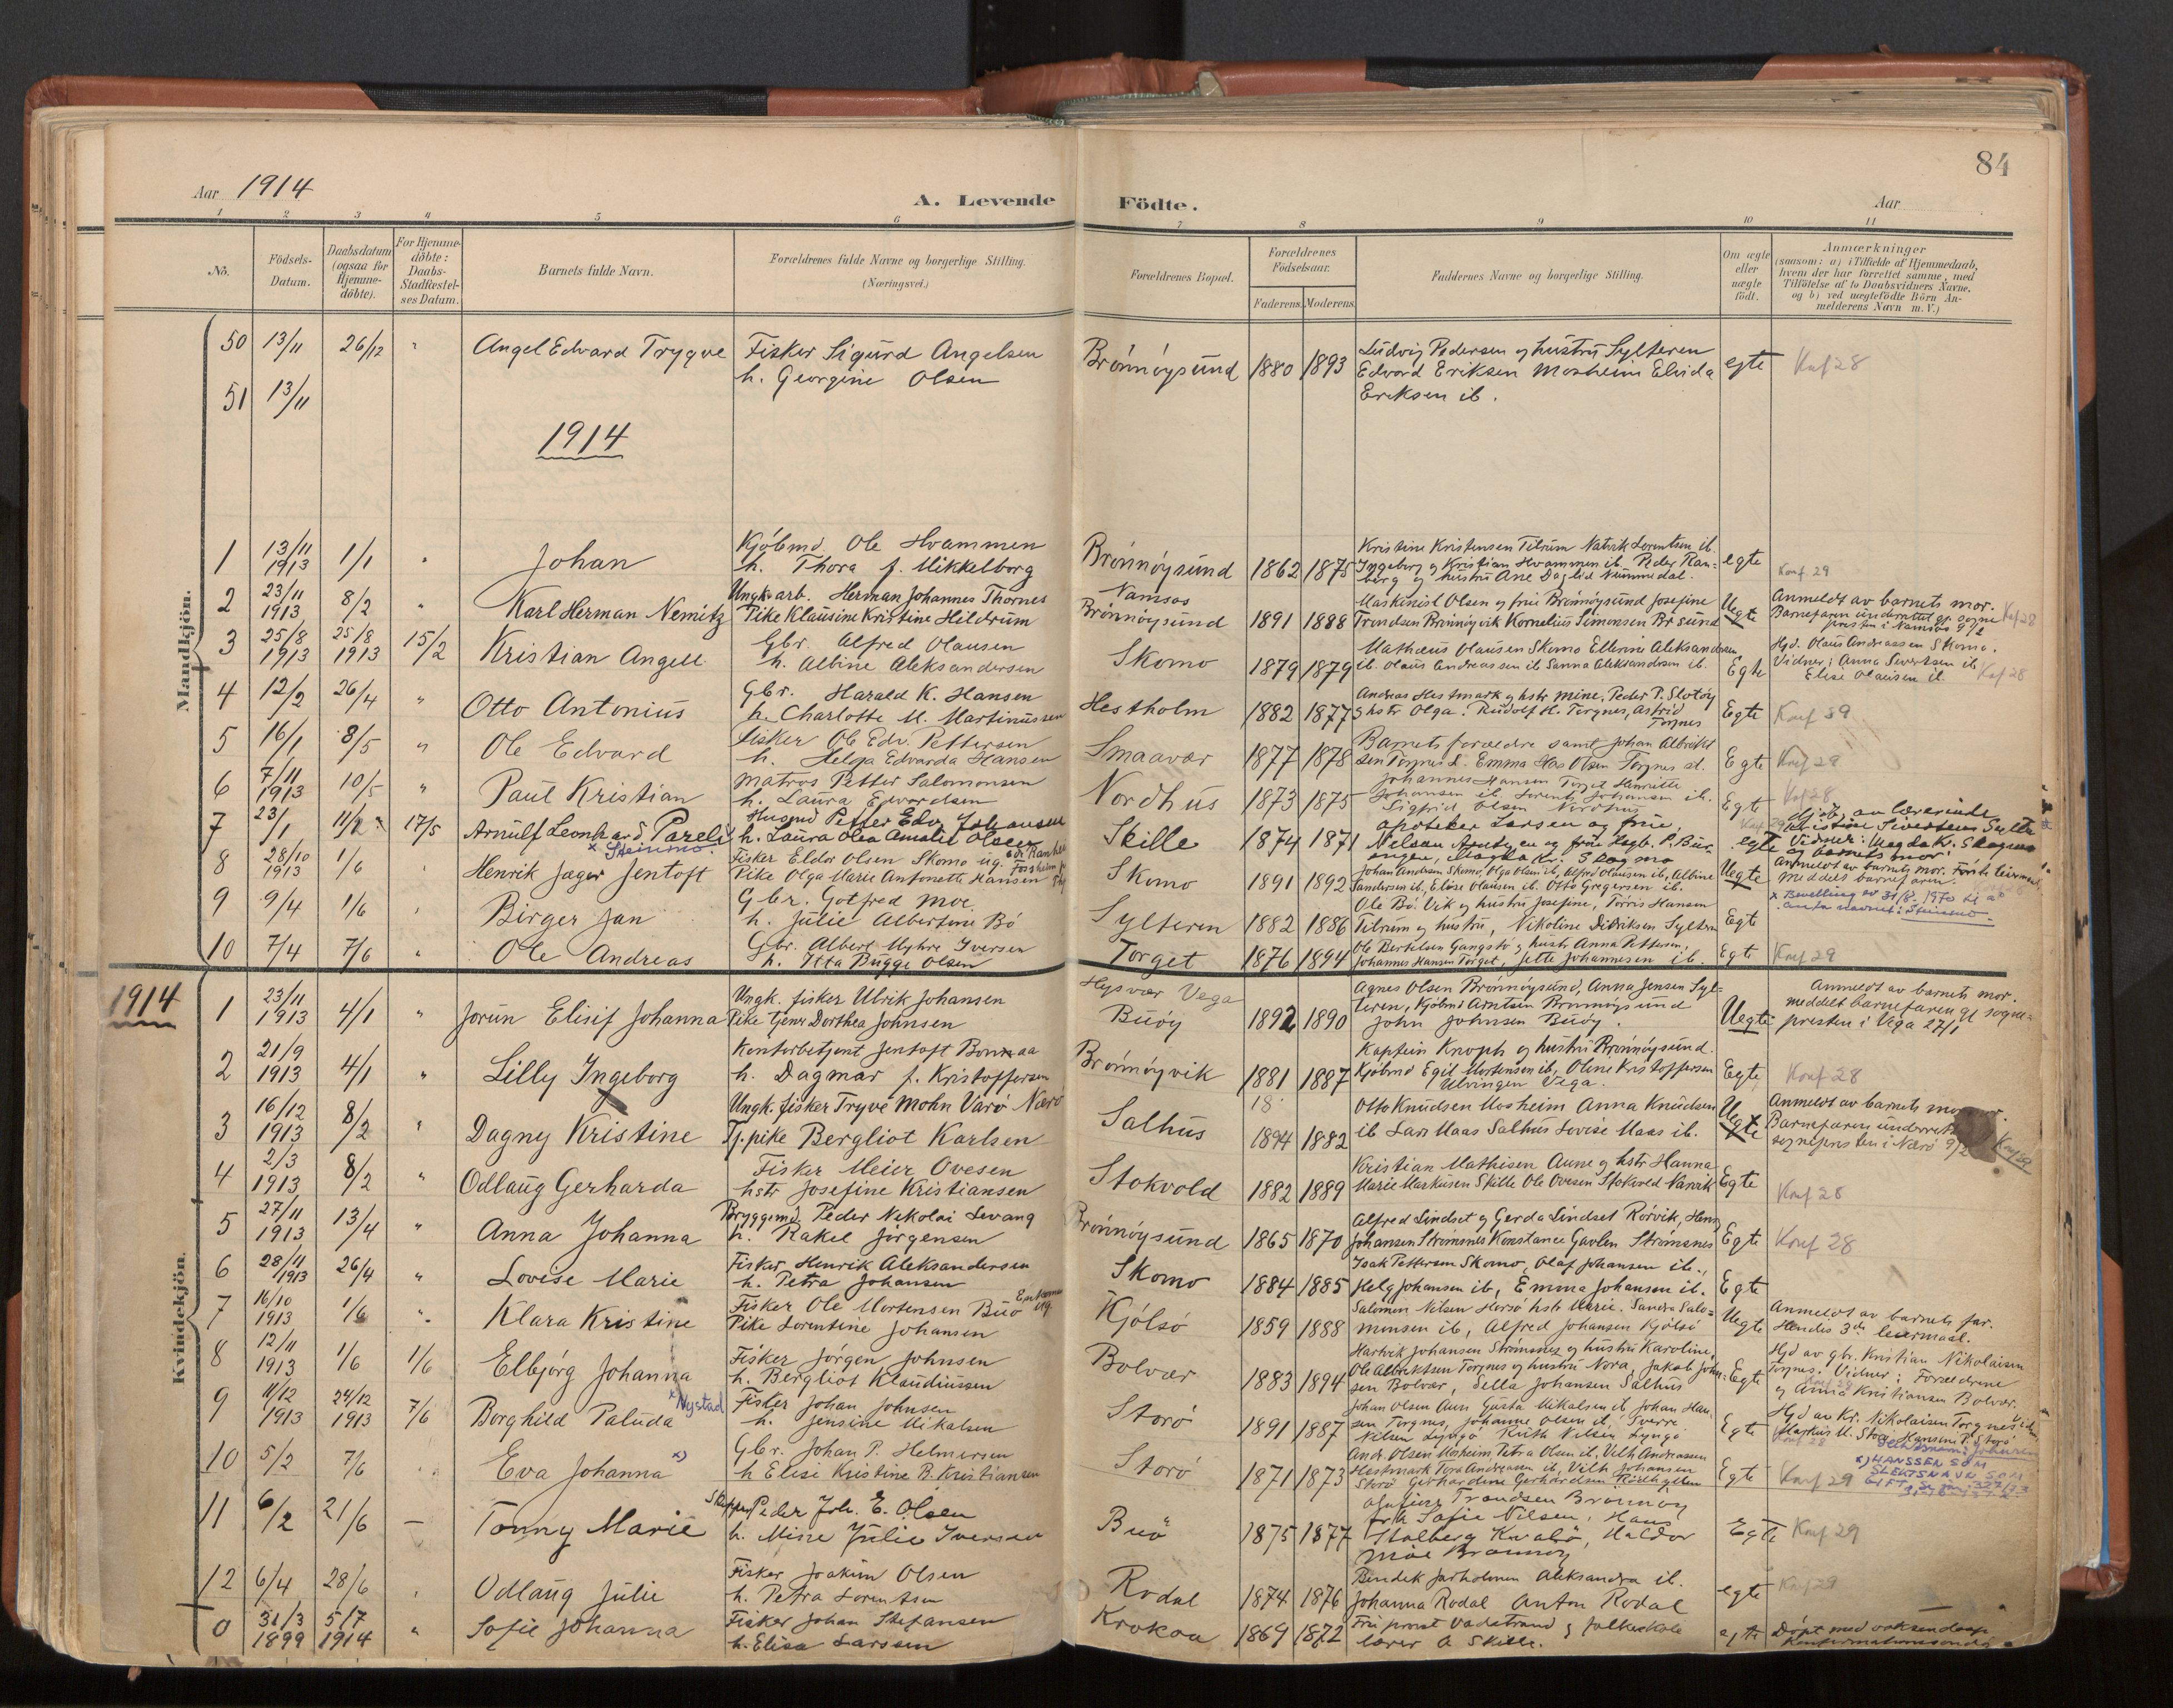 84
Aar 1914
A. Levende Födte.
Aar
1 2 3 4 5 6 7 8 9 10 11
No.
Födsels-Datum.
Daabsdatum (ogsaa for Hjemme-döbte).
For Hjemme-döbte: Daabs-Stadfæstel-ses Datum.
Barnets fulde Navn.
Forældrenes fulde Navne og borgerlige Stilling. (Næringsvei.)
Forældrenes Bopæl.
Forældrenes Födselsaar.
Faderens. Moderens.
Faddernes Navne og borgerlige Stilling.
Om ægte eller uægte födt.
Anmærkninger
(saasom: a) i Tilfælde af Hjemmedaab, hvem der har forrettet samme, med Tilföielse af to Daabsvidners Navne, og b) ved uægtefödte Börn An-melderens Navn m. V.)
Mandkjön.
50 13/11 26/12 " Angel Edvard Trygve Fisker Sigurd Angelsen
h. Georgine Olsen
Brönnöysund 1880 1893 Ludvig Pedersen og hustru Sylteren
Edvard Eriksen Mosheim Elvida
Eriksen ib. egte Konf 28
51 13/11
1914
1 13/11 1913 1/1 " Johan Kjöbmd. Ole Hvammen
h. Thora f. Mikkelborg
Brönnöysund 1862 1875 Kristine Kristensen Tilrum Natvik Lorentsen ib.
Ingeborg og Kristian Hvammen ib. Peder Ran-
berg og hustru Ane Daglid Nummedal. egte Konf. 29
2 23/11 1913 8/2 " Karl Herman Nemitz Ungk. arb. Herman Johannes Thornes
Pike Klausine Kristine Hildrum
Namsos
Brönnöysund 1891 1888 Maskinist Olsen og frue Brönnöysund Josefine
Trondsen Brönnöyvik Kornelius Simonsen Br sund Uegte Anmeldt av barnets mor.
Barnefaren underrettet gj. sogne
presten i Namsos 9/2 Konf 28
3 25/8 1913 25/8 1913 15/2 Kristian Angell Gbr. Alfred Olausen
h. Albine Aleksandersen
Skomo 1879 1879 Mathæus Olausen Skomo Ellevine Aleksandersen
ib. Olaus Andreassen ib Sanna Aleksandersen ib. Egte Hjd. Olaus Andreassen Skomo.
Vidner: Anna Sivertsen ib
Elise Olausen ib. Konf 28
4 12/2 26/4 " Otto Antonius Gbr. Harald K. Hansen
h. Charlotte M. Martinussen
Hestholm 1882 1877 Andreas Hestmark og hstr Mine, Peder P. Slotöy
g hstr Olga. Rudolf H. Torgnes, Astrid
Torgnes Egte Konf 29
5 16/1 8/5 " Ole Edvard Fisker Ole Edv. Pettersen
h. Helga Edvarda Hansen
Smaavær 1877 1878 Barnets forældre samt Johan Albrikt
sen Torgnes d. Emma Olsen Torgnes st. Egte Konf 29
6 7/11 1913 10/5 " Paul Kristian Matros Petter Salomonsen
h. Laura Edvardsen
Nordhus 1873 1875 Johannes Hansen Torget Henriette
Johansen ib. Johansen ib.
Sigfrid Olsen Nordhus Egte Konf 28
7 23/1 11/2 17/5 Arnulf Leonhard Pareli Husmd Petter Edv. Johansen
h. Laura Olea Amalie Olsen
Skille 1874 1871 Apoteker Larsen og frue,
Nelsen og frue
Magda Kr. Skogmo egte
Vidner: Magda K. Skogmo
og barnets mor.
8 28/10 1913 1/6 " Henrik Jæger Jentoft x Steinmo. Fisker Eldor Olsen Skomo ug.
Pike Olga Marie Antonette Hansen
Skomo 1891 1892 Johan Andersen Skomo, Olga Olsen ib, Alfred Olausen ib, Albine
Sandersen ib, Elise Olausen ib. Otto Gregersen ib. Uegte Anmeldt av barnets mor. Förste leiermaal
Meddelt barnefaren.
x Bevilling av 31/8. 1970 til at
anta navnet: Steinmo
9 9/4 1/6 " Birger Jan Gbr. Gotfred Moe
h. Julie Albertine Bö
Sylteren 1882 1886 Ole Bö Vik og hustru Josefine, Torris Hansen
Tilrum og hustru, Nikoline Didriksen Sylteren Egte
10 7/4 7/6 " Ole Andreas Gbr. Albert Myhre Iversen
h. Itta Bugge Olsen
Torget 1876 1894 Ole Bertelsen Gangstö g hustr Anna Pettersen,
Johannes Hansen Torget, Jette Johannesen ib. Egte Konf 29
1914
Kvindekjön.
1 23/11 1913 4/1 " Jorun Elisif Johanna Ungk. fisker Ulrik Johansen
Pike tjener Dorthea Johnsen
Hysvær Vega
Buöy 1892 1890 Agnes Olsen Brönnöysund, Anna Jensen Syl-
teren, Kjöbmd Arntsen Brönnöysund
John Johnsen Buöy. Uegte Anmeldt av barnets mor.
meddelt barnefaren gj sogne-
presten i Vega 27/1
2 21/9 1913 4/1 " Lilly Ingeborg Kontorbetjent Jentoft Bornaa
h. Dagmar f. Kristoffersen
Brönnöyvik 1881 1887 Kaptein Knoph og hustru Brönnöysund.
Kjöbmd Egil Mortensen ib, Oline Kristoffersen
Ulvingen Vega. Egte Konf 28
3 16/12 1913 8/2 " Dagny Kristine Ungk. fisker Tryve Mohn Varö Nærö
Tj. pike Bergliot Karlsen
Salhus 18 1894 1882 Otto Knudsen Mosheim Anna Knudsen
ib Lars Maas Salhus Lovise Maas ib. Uegte Anmeldt av barnets mor.
Barnefaren underrettet
sognepresten i Nærö 9/2 Konf 29
4 2/3 1913 8/2 " Odlaug Gerharda Fisker Meier Ovesen
hstr Josefine Kristiansen
Stokvold 1882 1889 Kristian Mathisen Aune og hstr Hanna
Marie Markusen Skille Ole Ovesen Stokvold Narvik Egte Konf 28
5 27/11 1913 13/4 " Anna Johanna Bryggemd Peder Nikolai Levang
h. Rakel Jörgensen
Brönnöysund 1865 1870 Alfred Lindset og Gerda Lindset Rörvik, Hans
Johansen Strömsnes Konstance Gavlen Strömsnes Egte Konf 28
6 28/11 1913 26/4 " Lovise Marie Fisker Henrik Aleksandersen
h. Petra Johansen
Skomo 1884 1885 Isak Pettersen Skomo, Olaf Johansen ib.,
Helg Johansen ib, Emma Johansen ib. Egte
7 16/10 1913 1/6 " Klara Kristine Fisker Ole Mortensen Buö Enkemand ug.
Pike Lorentine Johansen
Kjölsö 1859 1888 Salomon Nilsen Horsö hstr Marie. Sandra Salo-
monsen ib, Alfred Johansen Kjölsö Uegte Anmeldt av barnets far.
Hendes 3die leiermaal.
8 12/11 1913 1/6 1/6 Elbjörg Johanna Fisker Jörgen Johnsen
h. Bergliot Klaudiussen
Bolvær 1883 1894 Hartvik Johansen Strömsnes og hustru Karoline,
Ole Albriktsen Torgnes og hustru Nora, Jakob John-
sen Bolvær, Sella Johansen Salhus Egte Hjd av gbr. Kristian Nikolaisen
Torgnes. Vidner: Forældrene
og Anna Kristiansen Bolvær.
9 11/12 1913 24/12 1913 7/6 Borghild Paluda x) Nystad Fisker Johan Johnsen
h. Jensine Mikalsen
Storö 1891 1887 Johan Olsen Aun Gusta Mikalsen ib Johan Han-
sen Torgnes, Johanne Olsen d. Sverre
Nilsen Lyngö Ruth Nilsen Lyngö Egte Hjd av Kr. Nikolaisen Torgnes
Markus M. Storö Hansine P. Storö
10 5/2 7/6 " Eva Johanna x) Gbr. Johan P. Helmersen
h Elise Kristine B. Kristiansen
Storö 1871 1873 Andr. Olsen Mosheim, Petra Olsen ib, Vilh Andreassen
Hestmark Tora Andreassen ib, Vilh Johansen
Storö Gerhardine Gerhardsen Egte Konf 29
x) HANSSEN SOM
SLEKTSNAVN SOM
GIFT
11 6/2 21/6 — Tonny Marie Skipper Peder Joh. E. Olsen
h. Mine Julie Iversen
Buö 1875 1877 Trondsen Brönnöy
frk Sofie Nilsen, Hans
Stolberg Kvalö, Haldor
Moe Brönnöy Egte Konf 29
12 6/4 28/6 " Odlaug Julie Fisker Joakim Olsen
h. Petra Lorentsen
Rodal 1874 1876 Bendik Jarholmen Aleksandra ib.
Johanna Rodal Anton Rodal egte Konf 29
0 31/3 1899 5/7 1914 " Sofie Johanna Fisker Johan Stefansen
h. Elisa Larssen
Krokaa 1869 1872 Fru prost Vadestrand g folkeskole
lærer A Skille. egte Döpt med voksendaap
Konfirmationssöndag